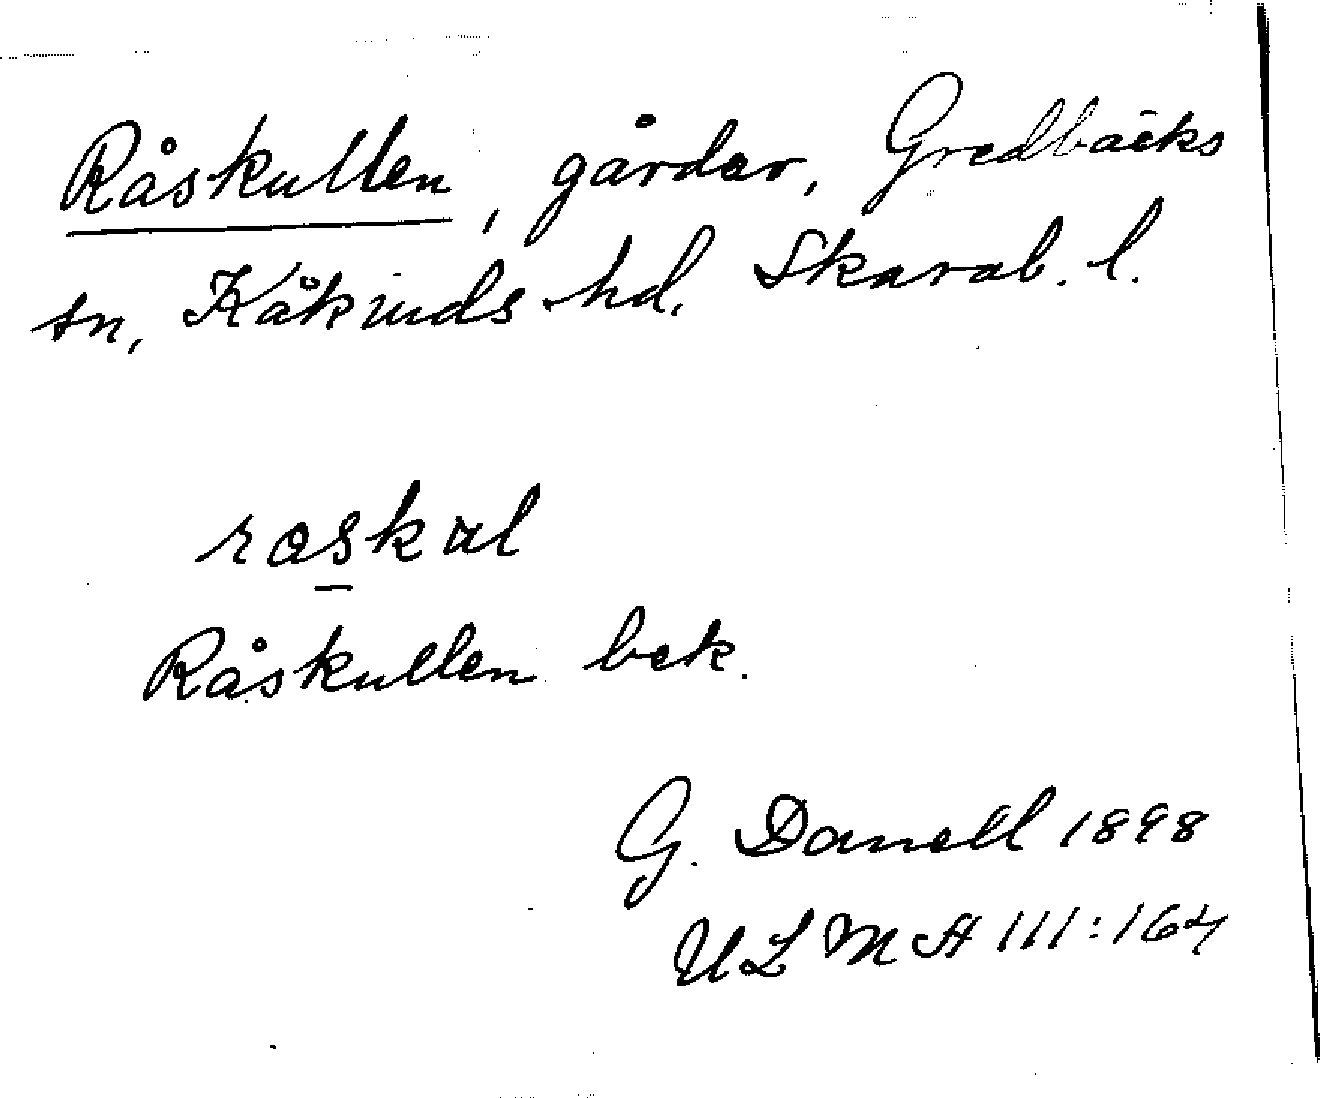 Råskullen, gårdar, Gredbäcks
sn, Kåkinds hd. Skarab. l.
raskul
Råskullen bek.
G. Danell 1898
ULMA 111:164